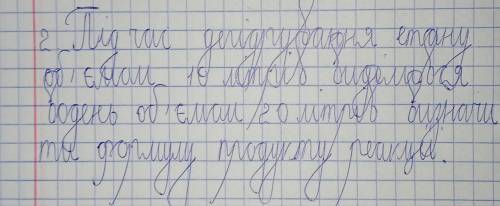 2 Під час дегідрування етану
об'ємом 10 літрів виділився
водень об'ємом 20 літрів визначи
ти формулу продукту реакції.